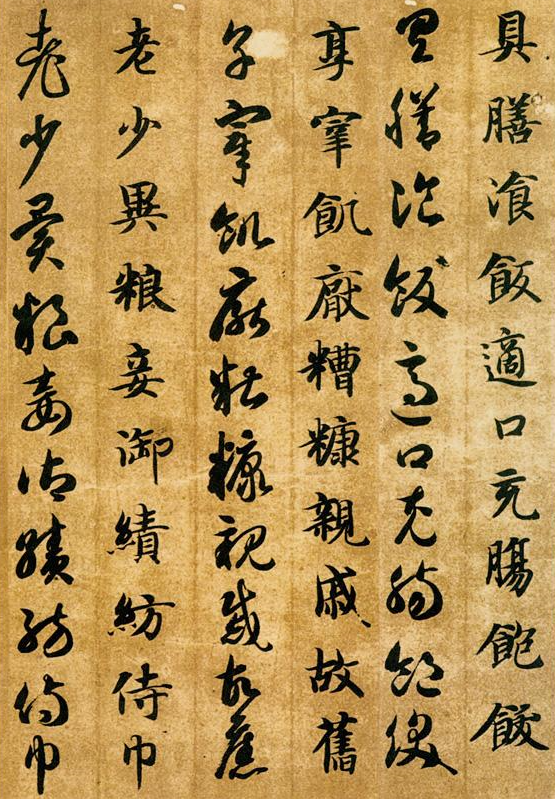 具膳飡飯適口充腸飽飫
具膳飡飯適口充腸飽飫
享宰飢厭糟糠親戚故舊
享宰飢厭糟糠親戚故舊
老少異粮妾御績紡侍巾
老少異粮妾御績紡侍巾